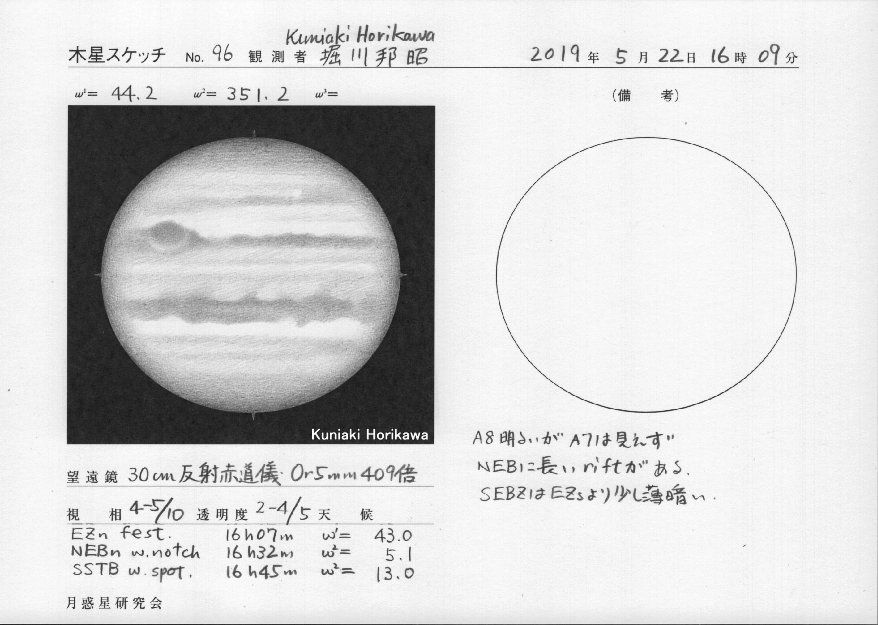 Kuniaki Horikawa
木星スケッチ No. 96 観測者 堀川邦昭 2019年 5月 22日 16時 09分
ω¹= 44.2 ω²= 351.2 ω³=
(備 考)
Kuniaki Horikawa
A8明るいがA7は見えず
NEBに長いriftがある.
SEBZはEZsより少し薄暗い.
望遠鏡 30cm反射赤道儀 Or5mm 409倍
視 相 4-5/10 透明度 2-4/5 天 候
EZn fest. 16h07m ω¹= 43.0
NEBn w.notch 16h32m ω²= 5.1
SSTB w.spot. 16h45m ω²= 13.0
月惑星研究会